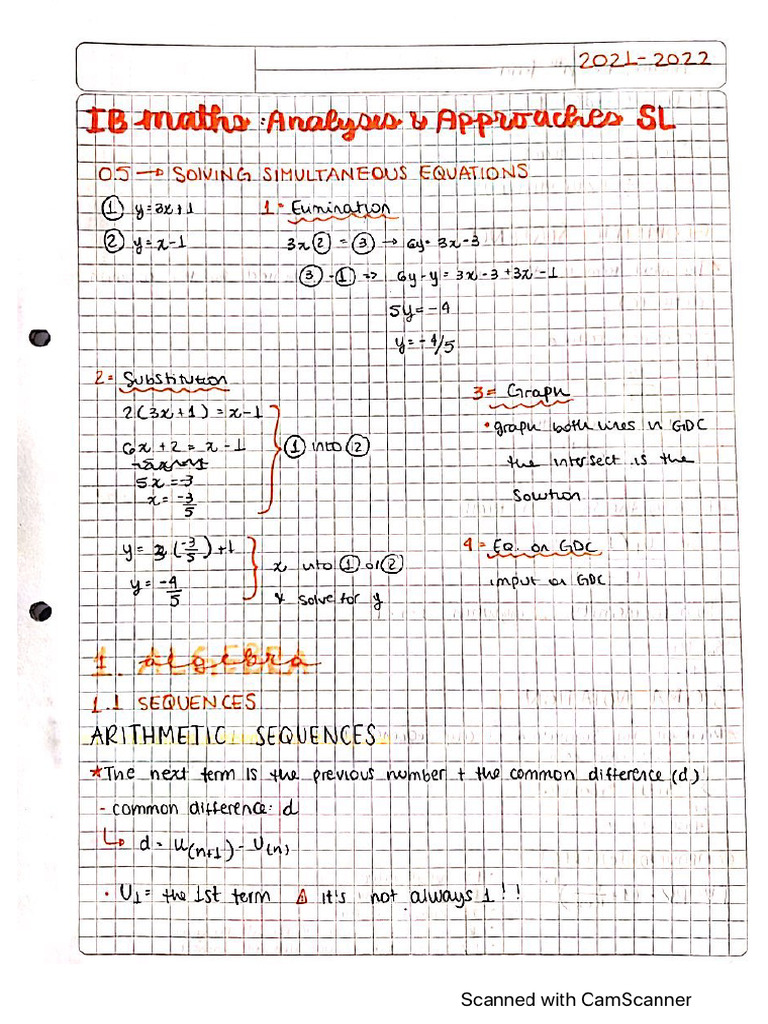 2021-2022
IB maths: Analysis & Approaches SL
0.5 → SOLVING SIMULTANEOUS EQUATIONS
① y=3x+1 1= Elimination
② y=x-1 3x② = ③ → 6y= 3x-3
③-① => 6y-y = 3x-3+3x-1
5y=-4
y=-4/5
2= Substitution
3= Graph
2(3x+1) = x-1
• graph both lines in GDC
6x+2 = x-1 ① into ②
the intersect is the
5x=-3
solution
x= -3/5
y= 3(-3/5)+1
4= Eq. on GDC
x into ① or ②
input on GDC
y= -4/5
& solve for y
1. algebra
1.1 SEQUENCES
ARITHMETIC SEQUENCES
*The next term is the previous number + the common difference (d)
- common difference: d
↳ d= u(n+1) - u(n)
• U1= the 1st term ⚠ it's not always 1!!
Scanned with CamScanner